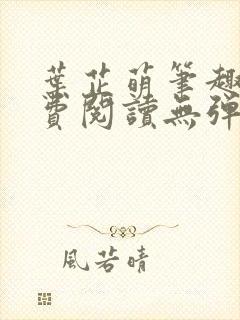 葉芷萌筆趣
費閱讀無彈
風若晴